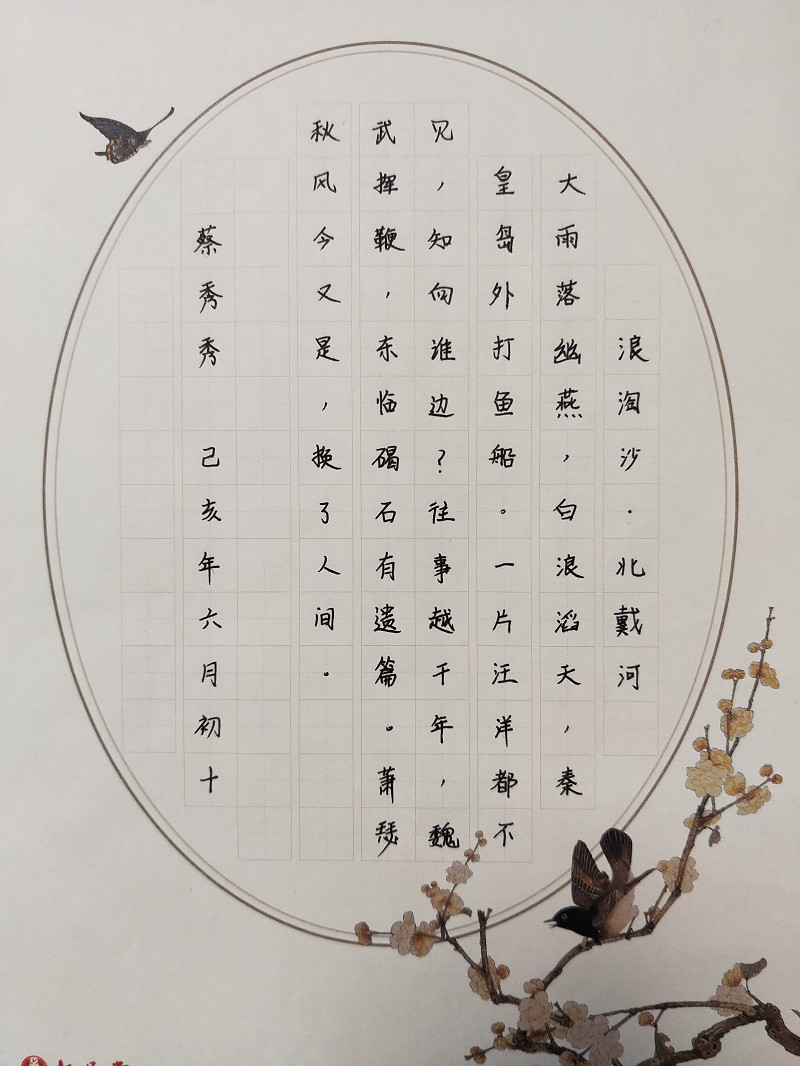 浪淘沙·北戴河
大雨落幽燕，白浪滔天，秦
皇岛外打鱼船。一片汪洋都不
见，知向谁边？往事越千年，魏
武挥鞭，东临碣石有遗篇。萧瑟
秋风今又是，换了人间.
蔡秀秀 己亥年六月初十